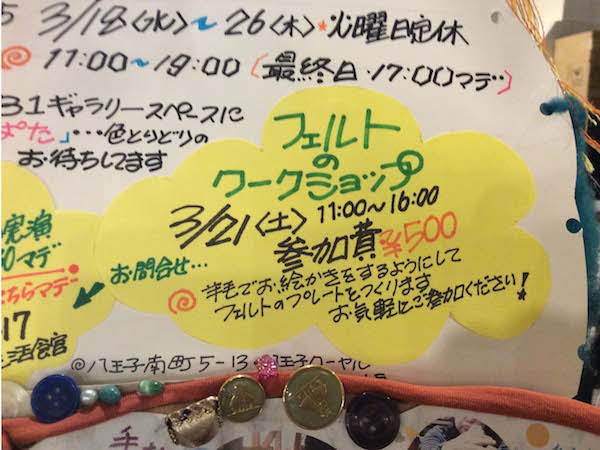 5 3/18〈水〉〜26〈木〉*火曜日定休
11:00〜19:00〈最終日17:00マデ〉
31ギャラリースペースに
ぱた」…色とりどりの
お待ちしてます
フェルト
の
ワークショップ
3/21〈土〉11:00〜16:00
参加費¥500
羊毛でお絵かきをするようにして
フェルトのプレートをつくります
お気軽にご参加ください!
実演
0マデ
お問合せ…
ちらマデ
17
活会館
◎八王子南町5-13